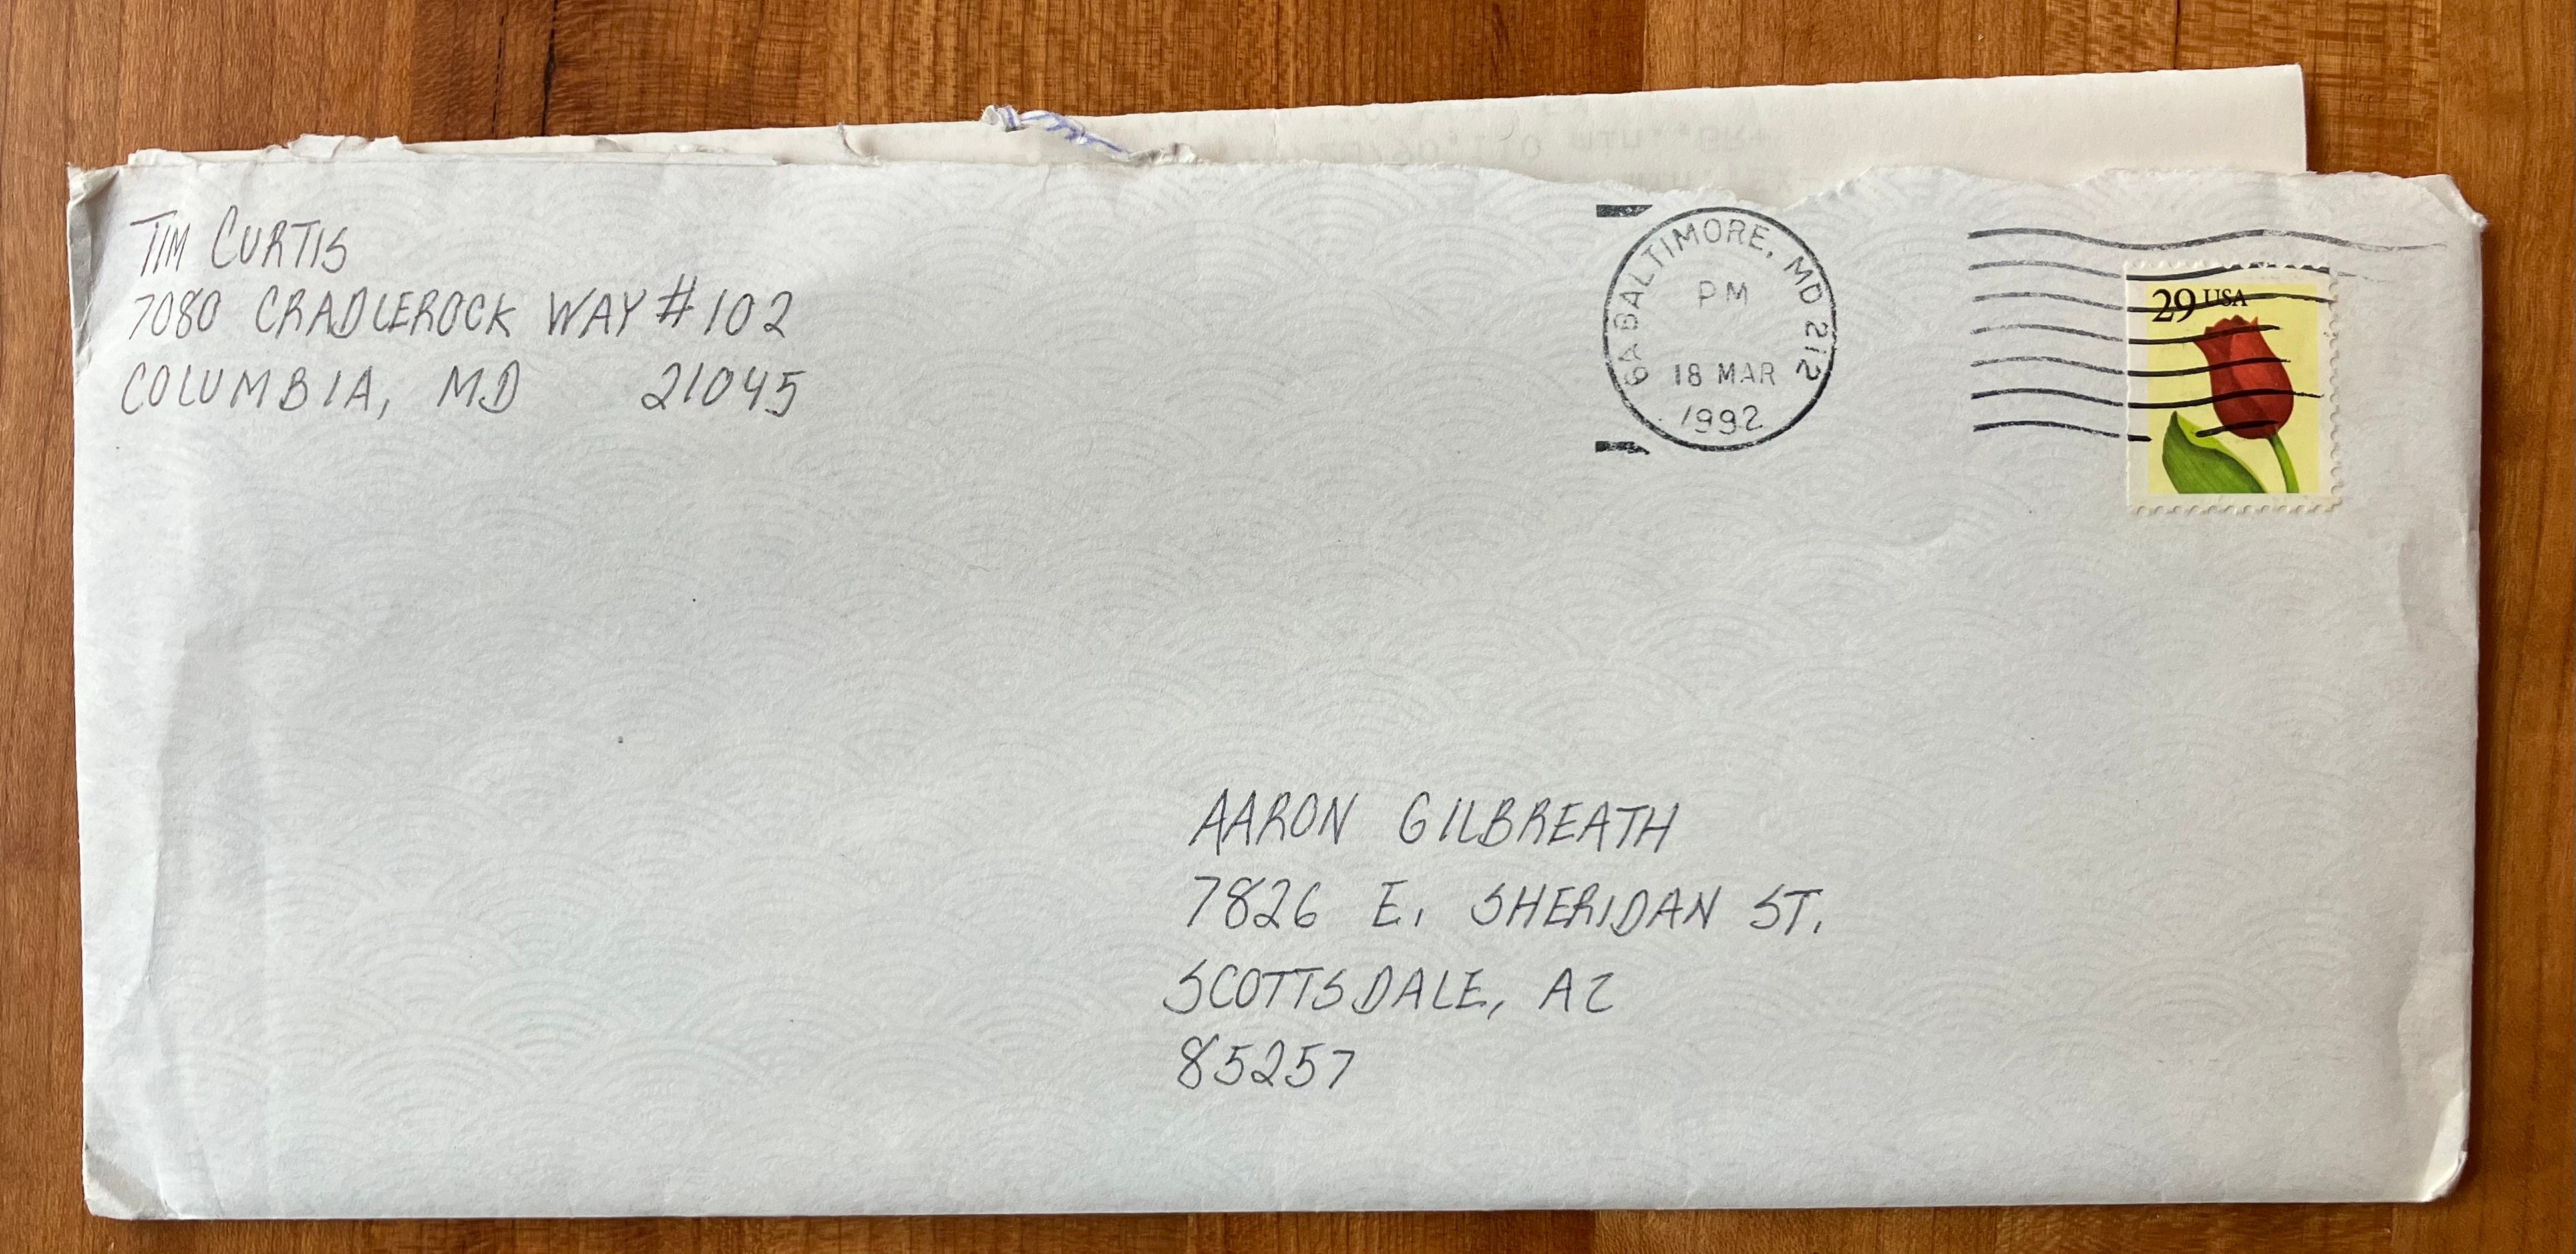 TIM CURTIS
7080 CRADLEROCK WAY #102
COLUMBIA, MD 21045
6A BALTIMORE, MD 212
PM
18 MAR
1992
29 USA
AARON GILBREATH
7826 E. SHERIDAN ST.
SCOTTSDALE, AZ
85257